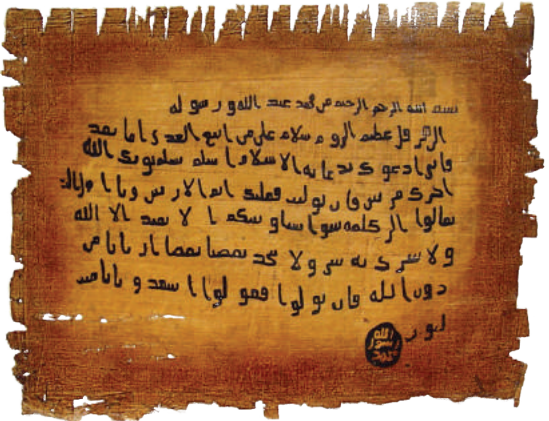 بسم الله الرحمن الرحيم من محمد عبد الله ورسوله
الى هرقل عظيم الروم سلام على من اتبع الهدى اما بعد
فانى ادعوك بدعاية الاسلام اسلم تسلم يوتك الله
اجرك مرتين فان توليت فعليك اثم الاريسيين ويا اهل
تعالوا الى كلمة سوا بيننا وبينكم الا نعبد الا الله
ولا نشرك به شيا ولا يتخذ بعضنا بعضا اربابا من
دون الله فان تولوا فقولوا اشهدوا بانا مس
لمون
الله
رسول
محمد